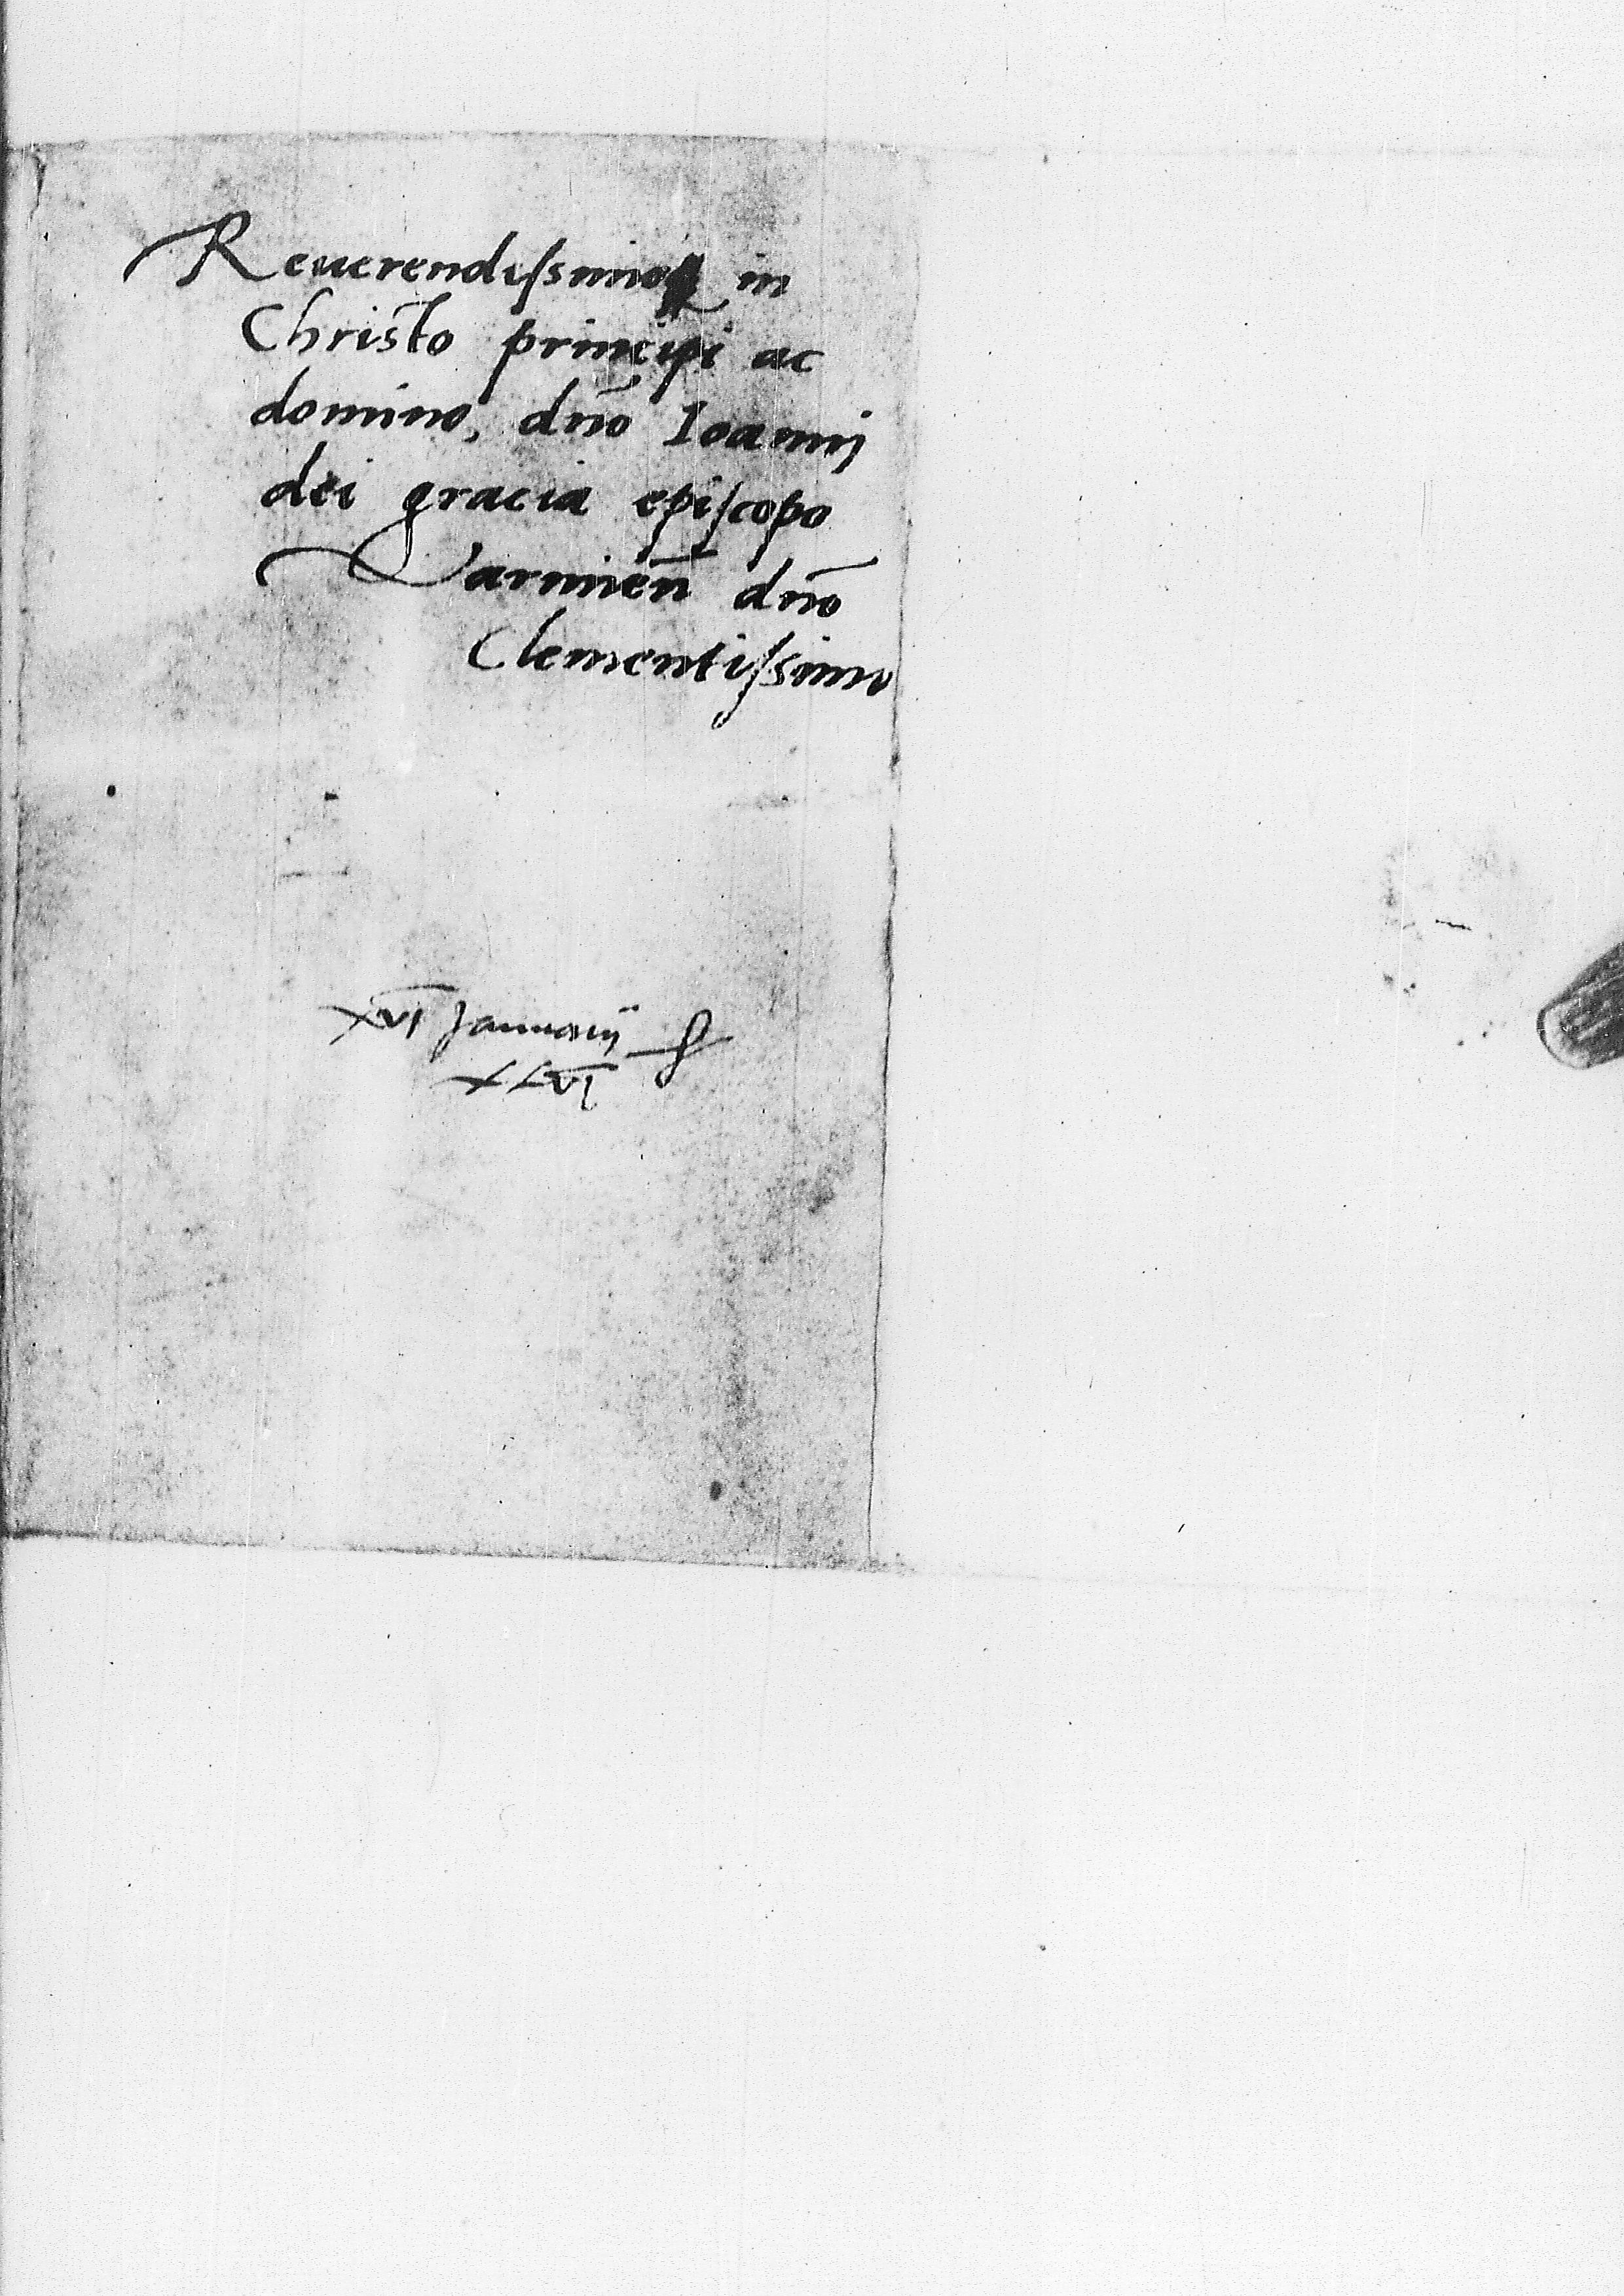 Reuerendisſimo in
Christo principi ac
domino, dn̄o Ioannj
dei gracia epiſcopo
Varmien̄ dn̄o
Clementiſsimo
XVI Januarij
XLVI